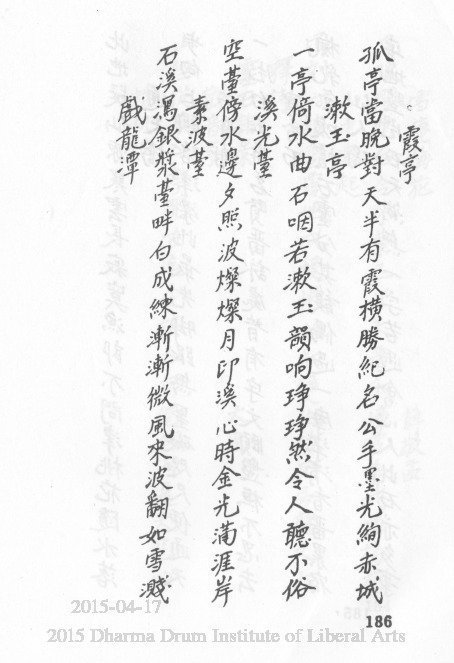 霞亭
孤亭當晚對天半有霞橫勝紀名公手墨光絢赤城
漱玉亭
一亭倚水曲石咽若漱玉韻响琤琤然令人聽不俗
溪光臺
空臺傍水邊夕照波燦燦月印溪心時金光滿涯岸
素波臺
石溪瀉銀漿臺畔白成練漸漸微風來波翻如雪濺
戲龍潭
186
2015-04-17
2015 Dharma Drum Institute of Liberal Arts